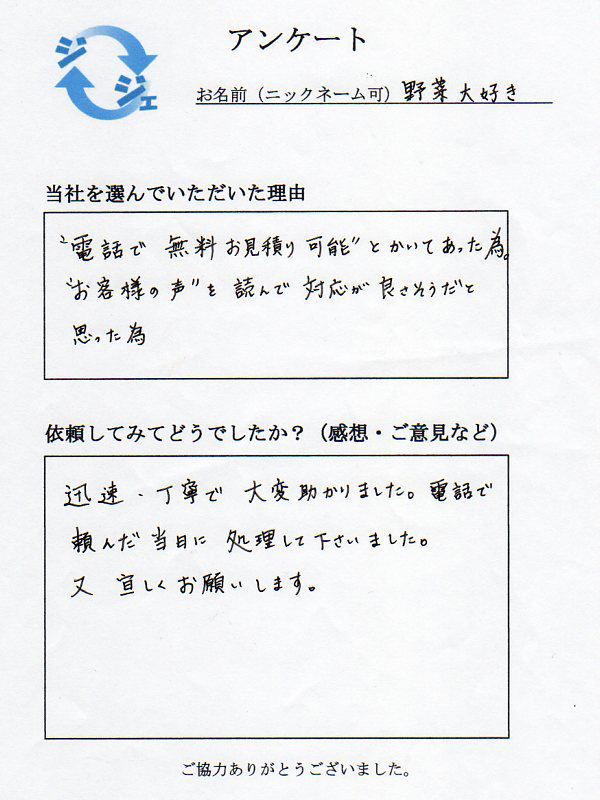 ジジェ
アンケート
お名前（ニックネーム可）野菜大好き
当社を選んでいただいた理由
"電話で 無料お見積り可能"とかいてあった為。
"お客様の声"を 読んで 対応が 良さそうだと
思った為
依頼してみてどうでしたか？（感想・ご意見など）
迅速・丁寧で 大変助かりました。電話で
頼んだ当日に 処理して下さいました。
又 宜しくお願いします。
ご協力ありがとうございました。